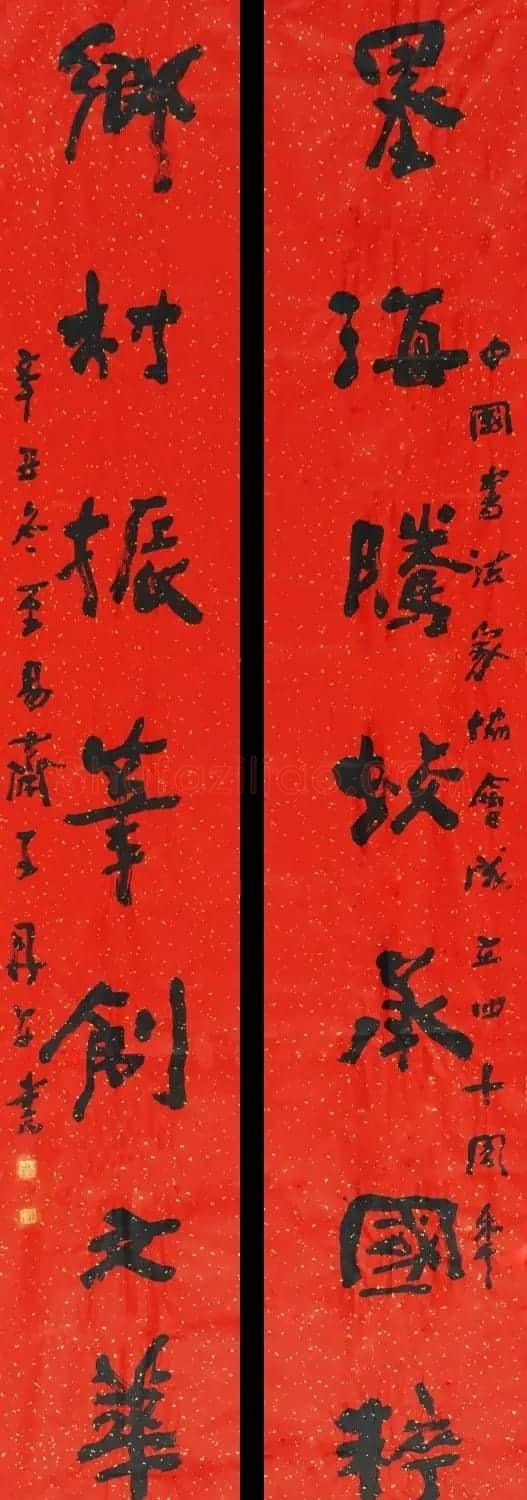 中國書法家協會成立四十周年
墨海騰蛟承國粹
鄉村振筆創文華
辛丑冬至易齋子書
shufaziliao.com